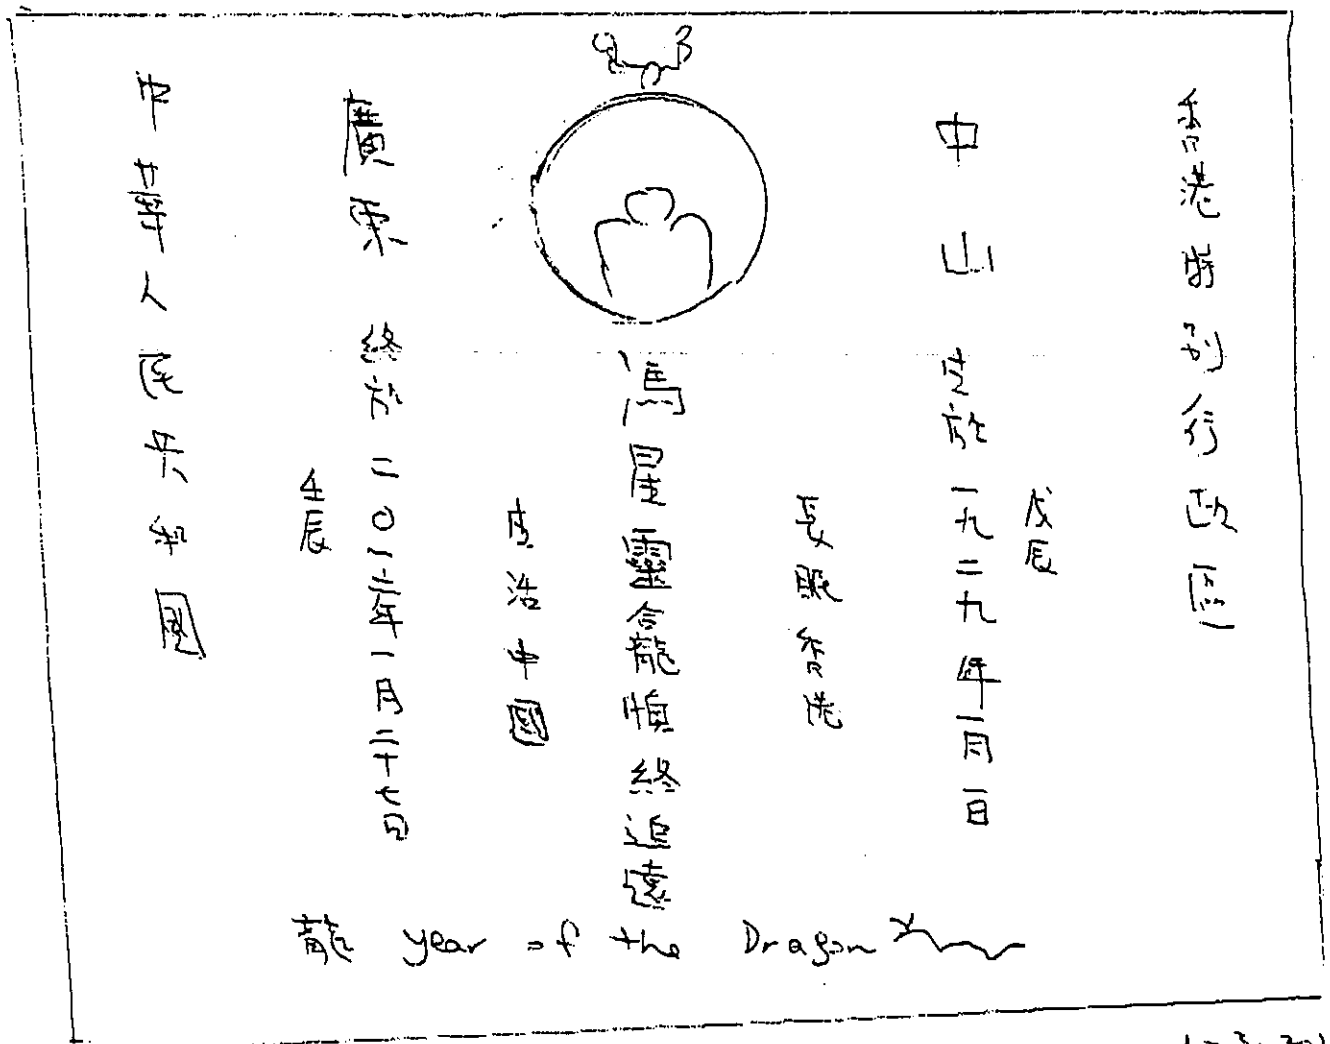 香港特別行政區
戊辰
中山 生於一九二九年一月一日
長眠香港
馮星靈合龍慎終追遠
浩中國
廣東 終於二〇一二年一月二十七日
壬辰
中華人民共和國
龍 year of the Dragon